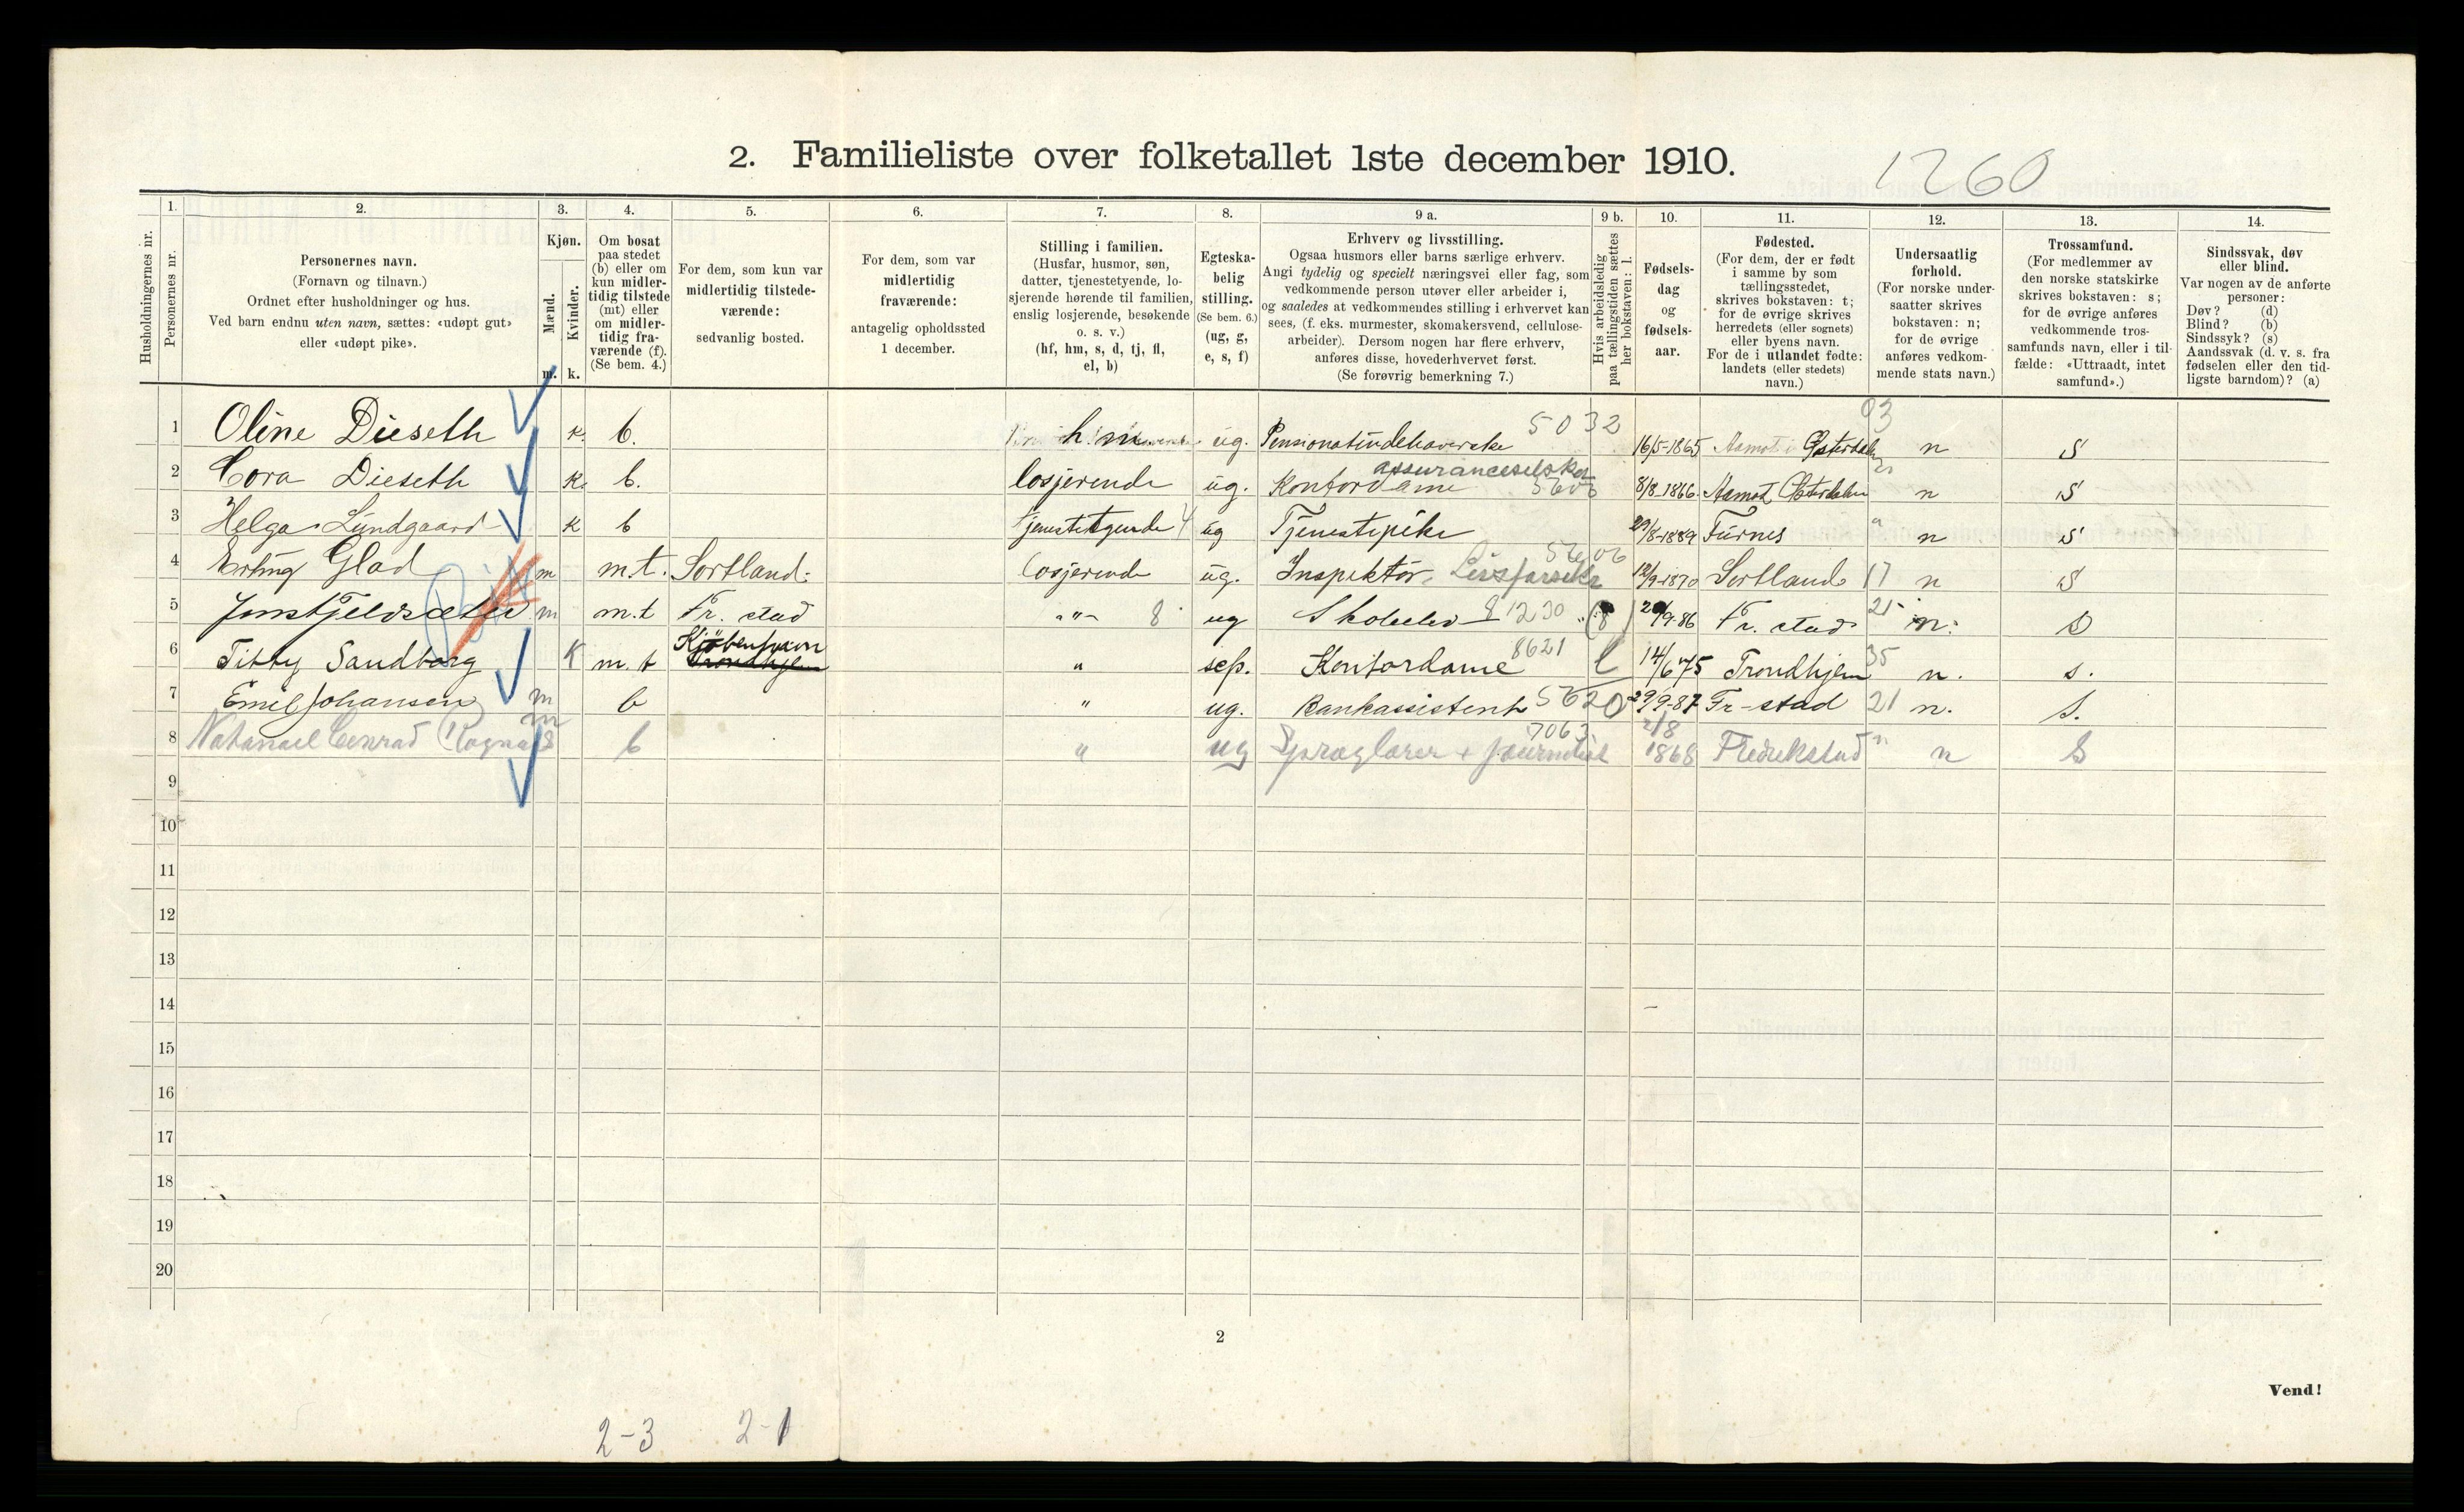 2. Familieliste over folketallet 1ste december 1910.
1260
Husholdningernes nr.
1.
Personernes nr.
2.
Personernes navn.
(Fornavn og tilnavn.)
Ordnet efter husholdninger og hus.
Ved barn endnu uten navn, sættes: «udøpt gut»
eller «udøpt pike».
3.
Kjøn.
Mænd.
Kvinder.
m. k.
4.
Om bosat
paa stedet
(b) eller om
kun midler-
tidig tilstede
(mt) eller
om midler-
tidig fra-
værende (f).
(Se bem. 4.)
5.
For dem, som kun var
midlertidig tilstede-
værende:
sedvanlig bosted.
6.
For dem, som var
midlertidig
fraværende:
antagelig opholdssted
1 december.
7.
Stilling i familien.
(Husfar, husmor, søn,
datter, tjenestetyende, lo-
sjerende hørende til familien,
enslig losjerende, besøkende
o. s. v.)
(hf, hm, s, d, tj, fl,
el, b)
8.
Egteska-
belig
stilling.
(Se bem. 6.)
(ug, g,
e, s, f)
9 a.
Erhverv og livsstilling.
Ogsaa husmors eller barns særlige erhverv.
Angi tydelig og specielt næringsvei eller fag, som
vedkommende person utøver eller arbeider i,
og saaledes at vedkommendes stilling i erhvervet kan
sees, (f. eks. murmester, skomakersvend, cellulose-
arbeider). Dersom nogen har flere erhverv,
anføres disse, hovederhvervet først.
(Se forøvrig bemerkning 7.)
9 b.
Hvis arbeidsledig
paa tællingstiden sættes
her bokstaven: l.
10.
Fødsels-
dag
og
fødsels-
aar.
11.
Fødested.
(For dem, der er født
i samme by som
tællingsstedet,
skrives bokstaven: t;
for de øvrige skrives
herredets (eller sognets)
eller byens navn.
For de i utlandet fødte:
landets (eller stedets)
navn.)
12.
Undersaatlig
forhold.
(For norske under-
saatter skrives
bokstaven: n;
for de øvrige
anføres vedkom-
mende stats navn.)
13.
Trossamfund.
(For medlemmer av
den norske statskirke
skrives bokstaven: s;
for de øvrige anføres
vedkommende tros-
samfunds navn, eller i til-
fælde: «Uttraadt, intet
samfund».)
14.
Sindssvak, døv
eller blind.
Var nogen av de anførte
personer:
Døv? (d)
Blind? (b)
Sindssyk? (s)
Aandssvak (d. v. s. fra
fødselen eller den tid-
ligste barndom)? (a)
1 Oline Dieseth k. b. hm ug. Pensionatindehaverske 5032 16/5-1865 Aamot i Østerdalen 03 n S
2 Cora Dieseth k. b. losjerende ug. Kontordame assuranceselskap 8/8-1866. Aamot Østerdalen " n S
3 Helga Lundgaard k b tjenestetyende 4 ug Tjenestepike 29/8-1889 Furnes " n S
4 Erling Glad m m.t. Sortland. losjerende ug. Inspektør 12/9-1870 Sortland 17 n S
5 m m.t Fr. stad -"- 8 ug Skoleelev 81230 (8) 20/9-86 Fr. stad 21 n. S
6 Titty Sandborg K m.t Kjøbenhavn Trondhjem " sep. Kontordame 8621 l 14/6 75 Trondhjem 35 n. s.
7 Emil Johansen m b " ug. Bankassistent 5620 29/9-87 Fr-stad 21 n. S.
8 Natanael Conrad Rognaas m b " ug Sproglærer + journalist 7063 2/8 1868 Fredrikstad " n S
9
10
11
12
13
14
15
16
17
18
19
20
2
Vend!
2-3 2-1